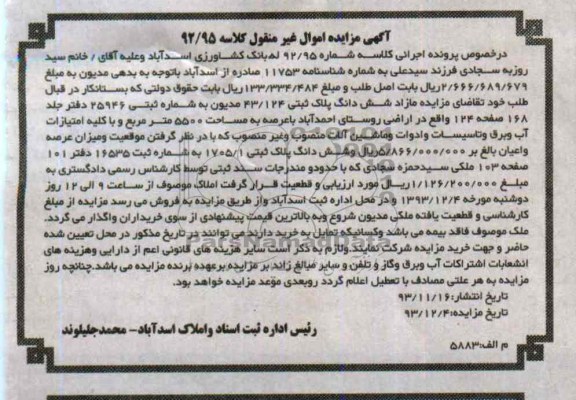 آگهی مزایده اموال غیر منقول کلاسه ۹۲/۹۵
درخصوص پرونده اجرائی کلاسه شماره ۹۲/۹۵ له بانک کشاورزی اسدآباد وعلیه آقای / خانم سید
روزبه سجادی فرزند سیدعلی به شماره شناسنامه ۱۱۷۵۳ صادره از اسدآباد باتوجه به بدهی مدیون به مبلغ
۲/۶۶۶/۶۸۹/۶۷۹ریال بابت اصل طلب و مبلغ ۱۳۳/۳۳۴/۴۸۴ریال بابت حقوق دولتی که بستانکار در قبال
طلب خود تقاضای مزایده مازاد شش دانگ پلاک ثبتی ۴۳/۱۲۴ مدیون به شماره ثبتی ۲۵۹۴۶ دفتر جلد
۱۶۸ صفحه ۱۲۴ واقع در اراضی روستای احمدآباد باعرصه به مساحت ۵۵۰۰ متر مربع و با کلیه امتیازات
آب وبرق وتاسیسات وادوات وماشین آلات منصوب وغیر منصوب که با در نظر گرفتن موقعیت ومیزان عرصه
واعیان بالغ بر ۵/۸۶۶/۰۰۰/۰۰۰ریال وشش دانگ پلاک ثبتی ۱/۱۷۰۵ به شماره ثبت ۱۶۵۳۵ دفتر ۱۰۱
صفحه ۱۰۳ ملکی سیدحمزه سجادی که با حدود مندرجات سند ثبتی توسط کارشناس رسمی دادگستری به
مبلغ ۱/۱۲۶/۲۰۰/۰۰۰ریال مورد ارزیابی و قطعیت قرار گرفت املاک موصوف از ساعت ۹ الی ۱۲ روز
دوشنبه مورخه ۱۳۹۳/۱۲/۴ و در محل اداره ثبت اسدآباد واز طریق مزایده به فروش می رسد مزایده از مبلغ
کارشناسی و قطعیت یافته ملکی مدیون شروع وبه بالاترین قیمت پیشنهادی از سوی خریداران واگذار می گردد.
ملک موصوف فاقد بیمه می باشد وکسانیکه تمایل به خرید دارند می توانند در تاریخ مذکور در محل تعیین شده
حاضر و جهت خرید مزایده شرکت نمایند.ولازم به ذکر است سایر هزینه های قانونی اعم از دارایی وهزینه های
انشعابات اشتراکات آب وبرق وگاز و تلفن و سایر مبالغ زائد بر مزایده برعهده برنده مزایده می باشد.چنانچه روز
مزایده به هر علتی مصادف با تعطیل اعلام گردد روبعدی موعد مزایده خواهد بود.
تاریخ انتشار:۹۳/۱۱/۱۶
تاریخ مزایده:۹۳/۱۲/۴
رئیس اداره ثبت اسناد واملاک اسدآباد- محمدجلیلوند
م الف:۵۸۸۳